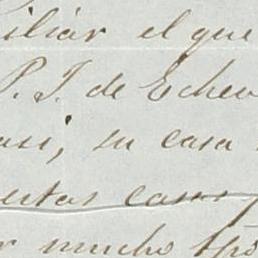 iliár el que
P. J. de Echev
asi, su casa
estas casas
r mucho tpõ